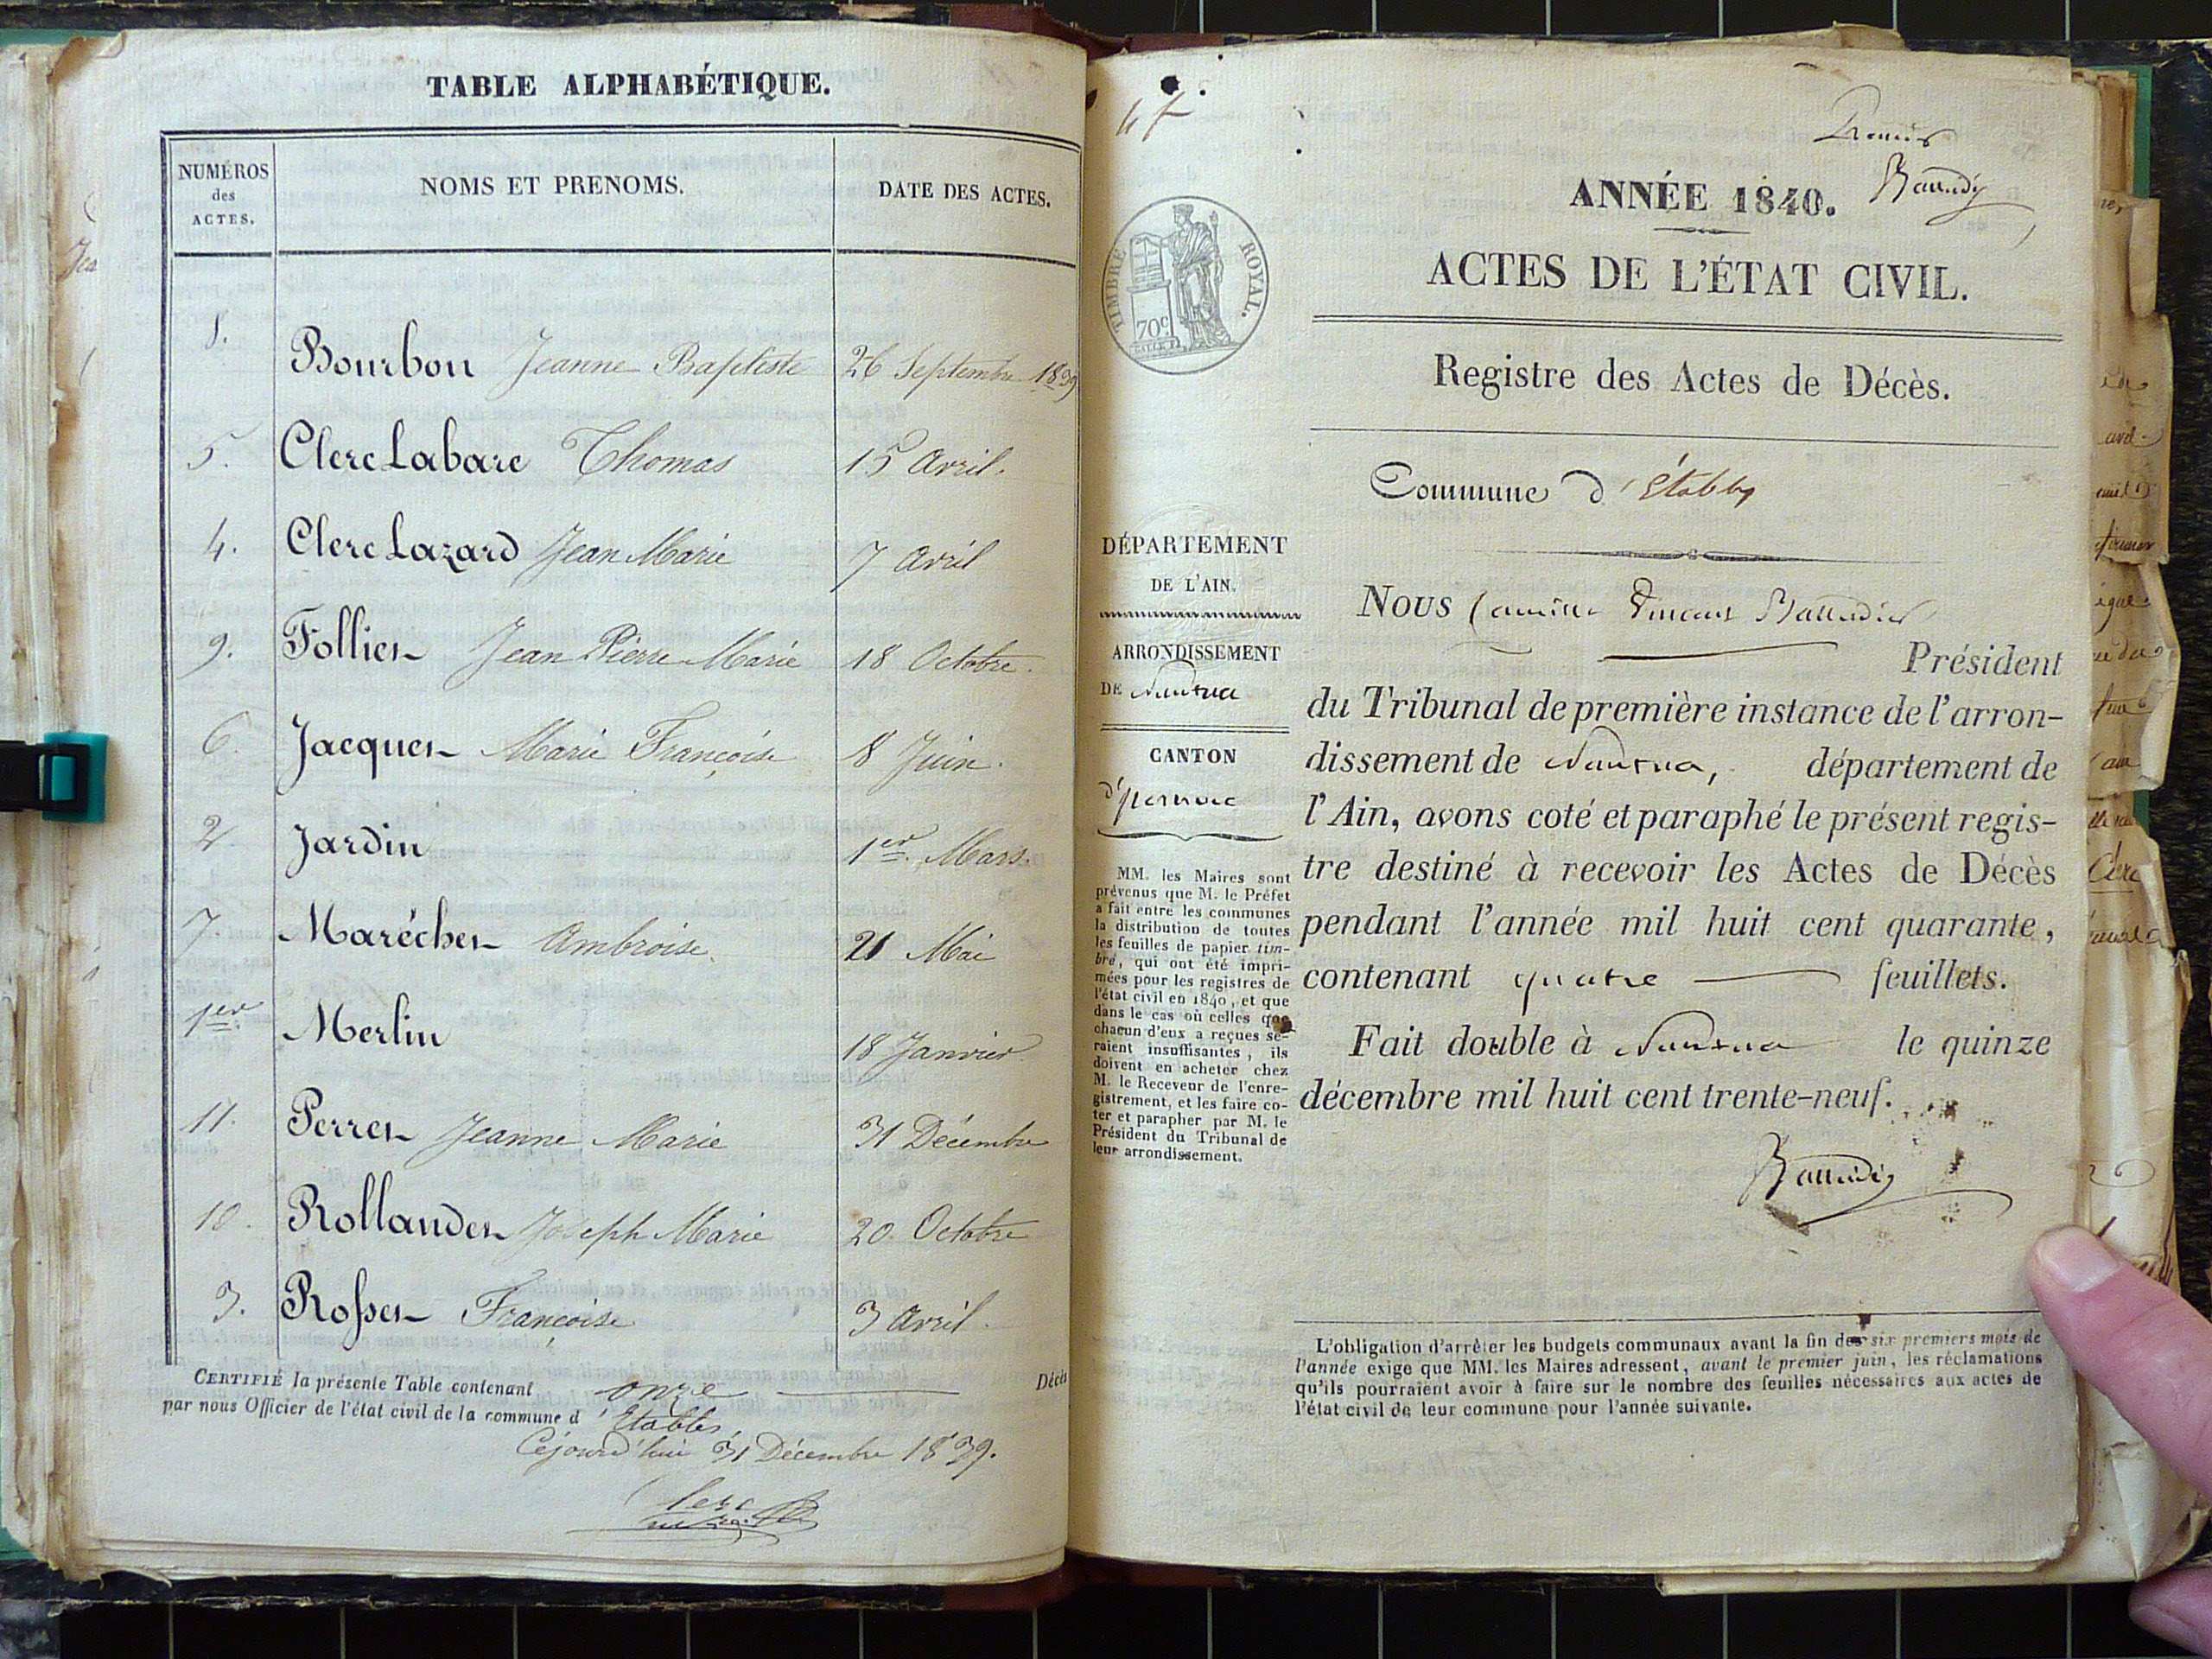 TABLE ALPHABÉTIQUE.
NUMÉROS des ACTES.
NOMS ET PRENOMS.
DATE DES ACTES.
8. Bourbon Jeanne Baptiste 26 Septembre 1839
5. Clerc Labare Thomas 15 avril.
4. Clerc Lazard Jean Marie 7 avril
9. Follier Jean Pierre Marie 18 Octobre.
6. Jacquer Marie Françoise 8 Juin.
2. Jardin 1er. Mars.
7. Marécher Ambroise. 21 Mai
1er Merlin 18 Janvier
11. Perrer Jeanne Marie 31 Décembre
10. Rollander Joseph Marie 20. Octobre
3. Rosser Françoise 3 avril.
CERTIFIÉ la présente Table contenant onze Décès
par nous Officier de l'état civil de la commune d'Etables,
Cejourd'hui 31 Décembre 1839.
Clerc
TIMBRE ROYAL.
70c
ANNÉE 1840.
ACTES DE L'ÉTAT CIVIL.
Registre des Actes de Décès.
Commune d'Étables
DÉPARTEMENT
DE L'AIN.
ARRONDISSEMENT
DE Nantua
CANTON
MM. les Maires sont
prévenus que M. le Préfet
a fait entre les communes
la distribution de toutes
les feuilles de papier tim-
bré, qui ont été impri-
mées pour les registres de
l'état civil en 1840, et que
dans le cas où celles que
chacun d'eux a reçues se-
raient insuffisantes, ils
doivent en acheter chez
M. le Receveur de l'enre-
gistrement, et les faire co-
ter et parapher par M. le
Président du Tribunal de
leur arrondissement.
Nous Camille Vincent
Président
du Tribunal de première instance de l'arron-
dissement de Nantua, département de
l'Ain, avons coté et paraphé le présent regis-
tre destiné à recevoir les Actes de Décès
pendant l'année mil huit cent quarante,
contenant quatre feuillets.
Fait double à Nantua le quinze
décembre mil huit cent trente-neuf.
L'obligation d'arrêter les budgets communaux avant la fin des six premiers mois de
l'année exige que MM. les Maires adressent, avant le premier juin, les réclamations
qu'ils pourraient avoir à faire sur le nombre des feuilles nécessaires aux actes de
l'état civil de leur commune pour l'année suivante.